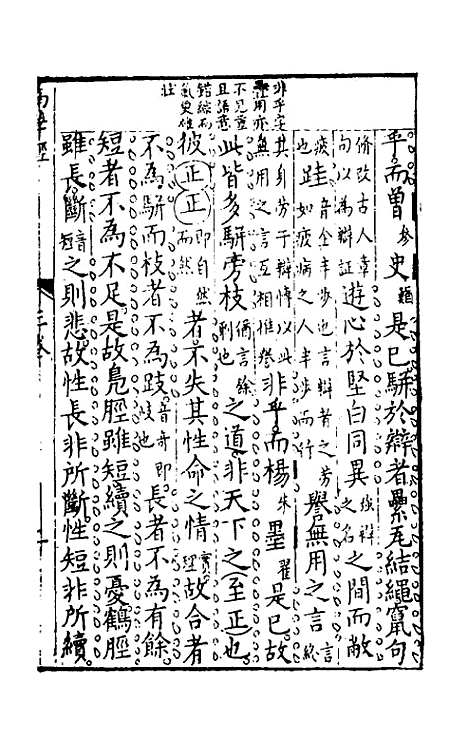 非乎字
用亦
不見重
且語意
錯綜而
氣更雄
壯
乎而曾參史鰌是已駢於辯者纍瓦結繩竄句
修改古人章句以為辯證遊心於堅白同異強辯之名之間而敝
疲跬音企半步也言辯者之勞也足如疲病之人半步而行譽無用之言言
其身勞于辯博以此無用之言互相推譽非乎而楊朱墨翟是已故
此皆多駢旁枝猶言餘剩也之道非天下之至正也
彼正正即自然而然者不失其性命之情實理故合者
不為駢而枝者不為跂音奇即歧也長者不為有餘
短者不為不足是故鳧脛雖短續之則憂鶴脛
雖長斷音短之則悲故性長非所斷性短非所續
南華經